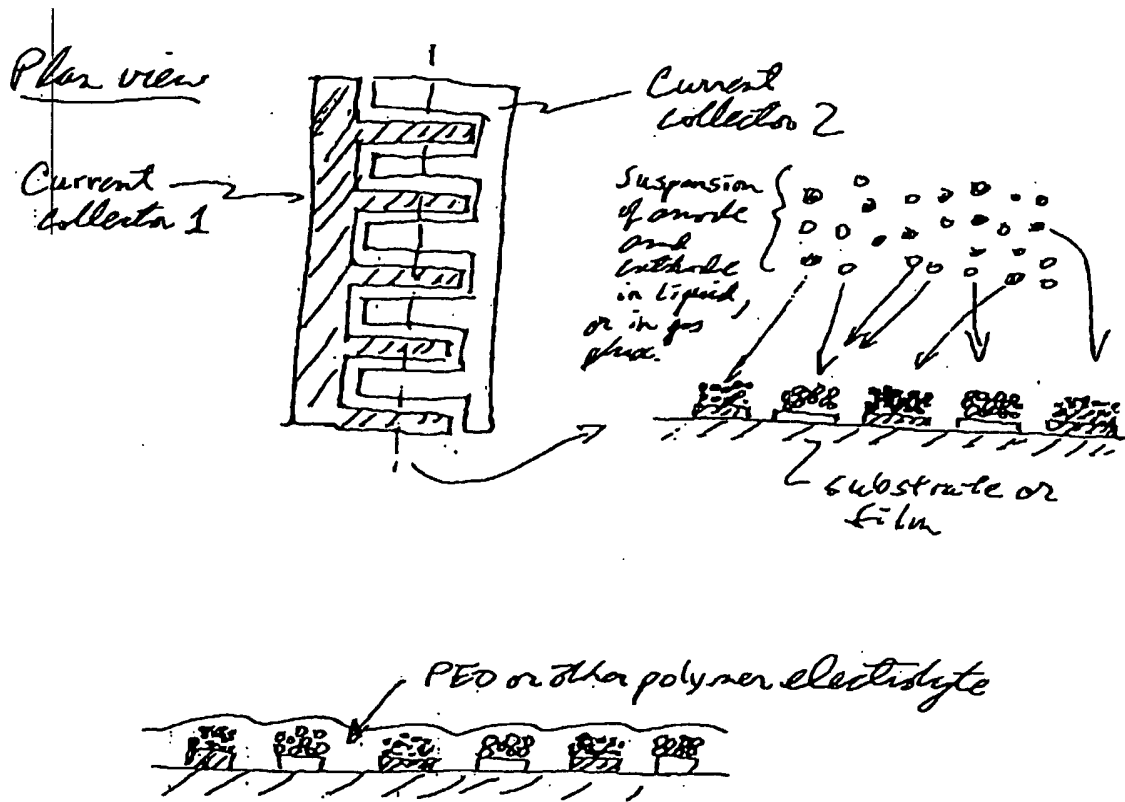 Plan view
Current
collector 2
Current
collector 1
Suspension
of anode
and
cathode
in liquid,
or in gas
phase.
substrate or
film
PEO or other polymer electrolyte